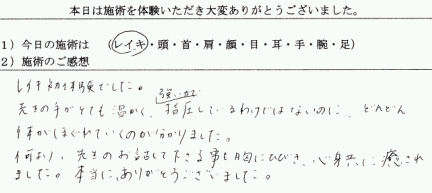 本日は施術を体験いただき大変ありがとうございました。
1）今日の施術は （レイキ・頭・首・肩・顔・目・耳・手・腕・足）
2）施術のご感想
レイキ初体験でした。
先生の手がとても温かく、強い力で指圧しているわけではないのに、どんどん
体がほぐれていくのが分かりました。
何より、先生のお話して下さる事も胸にひびき、心身共に癒され
ました。本当に、ありがとうございました。